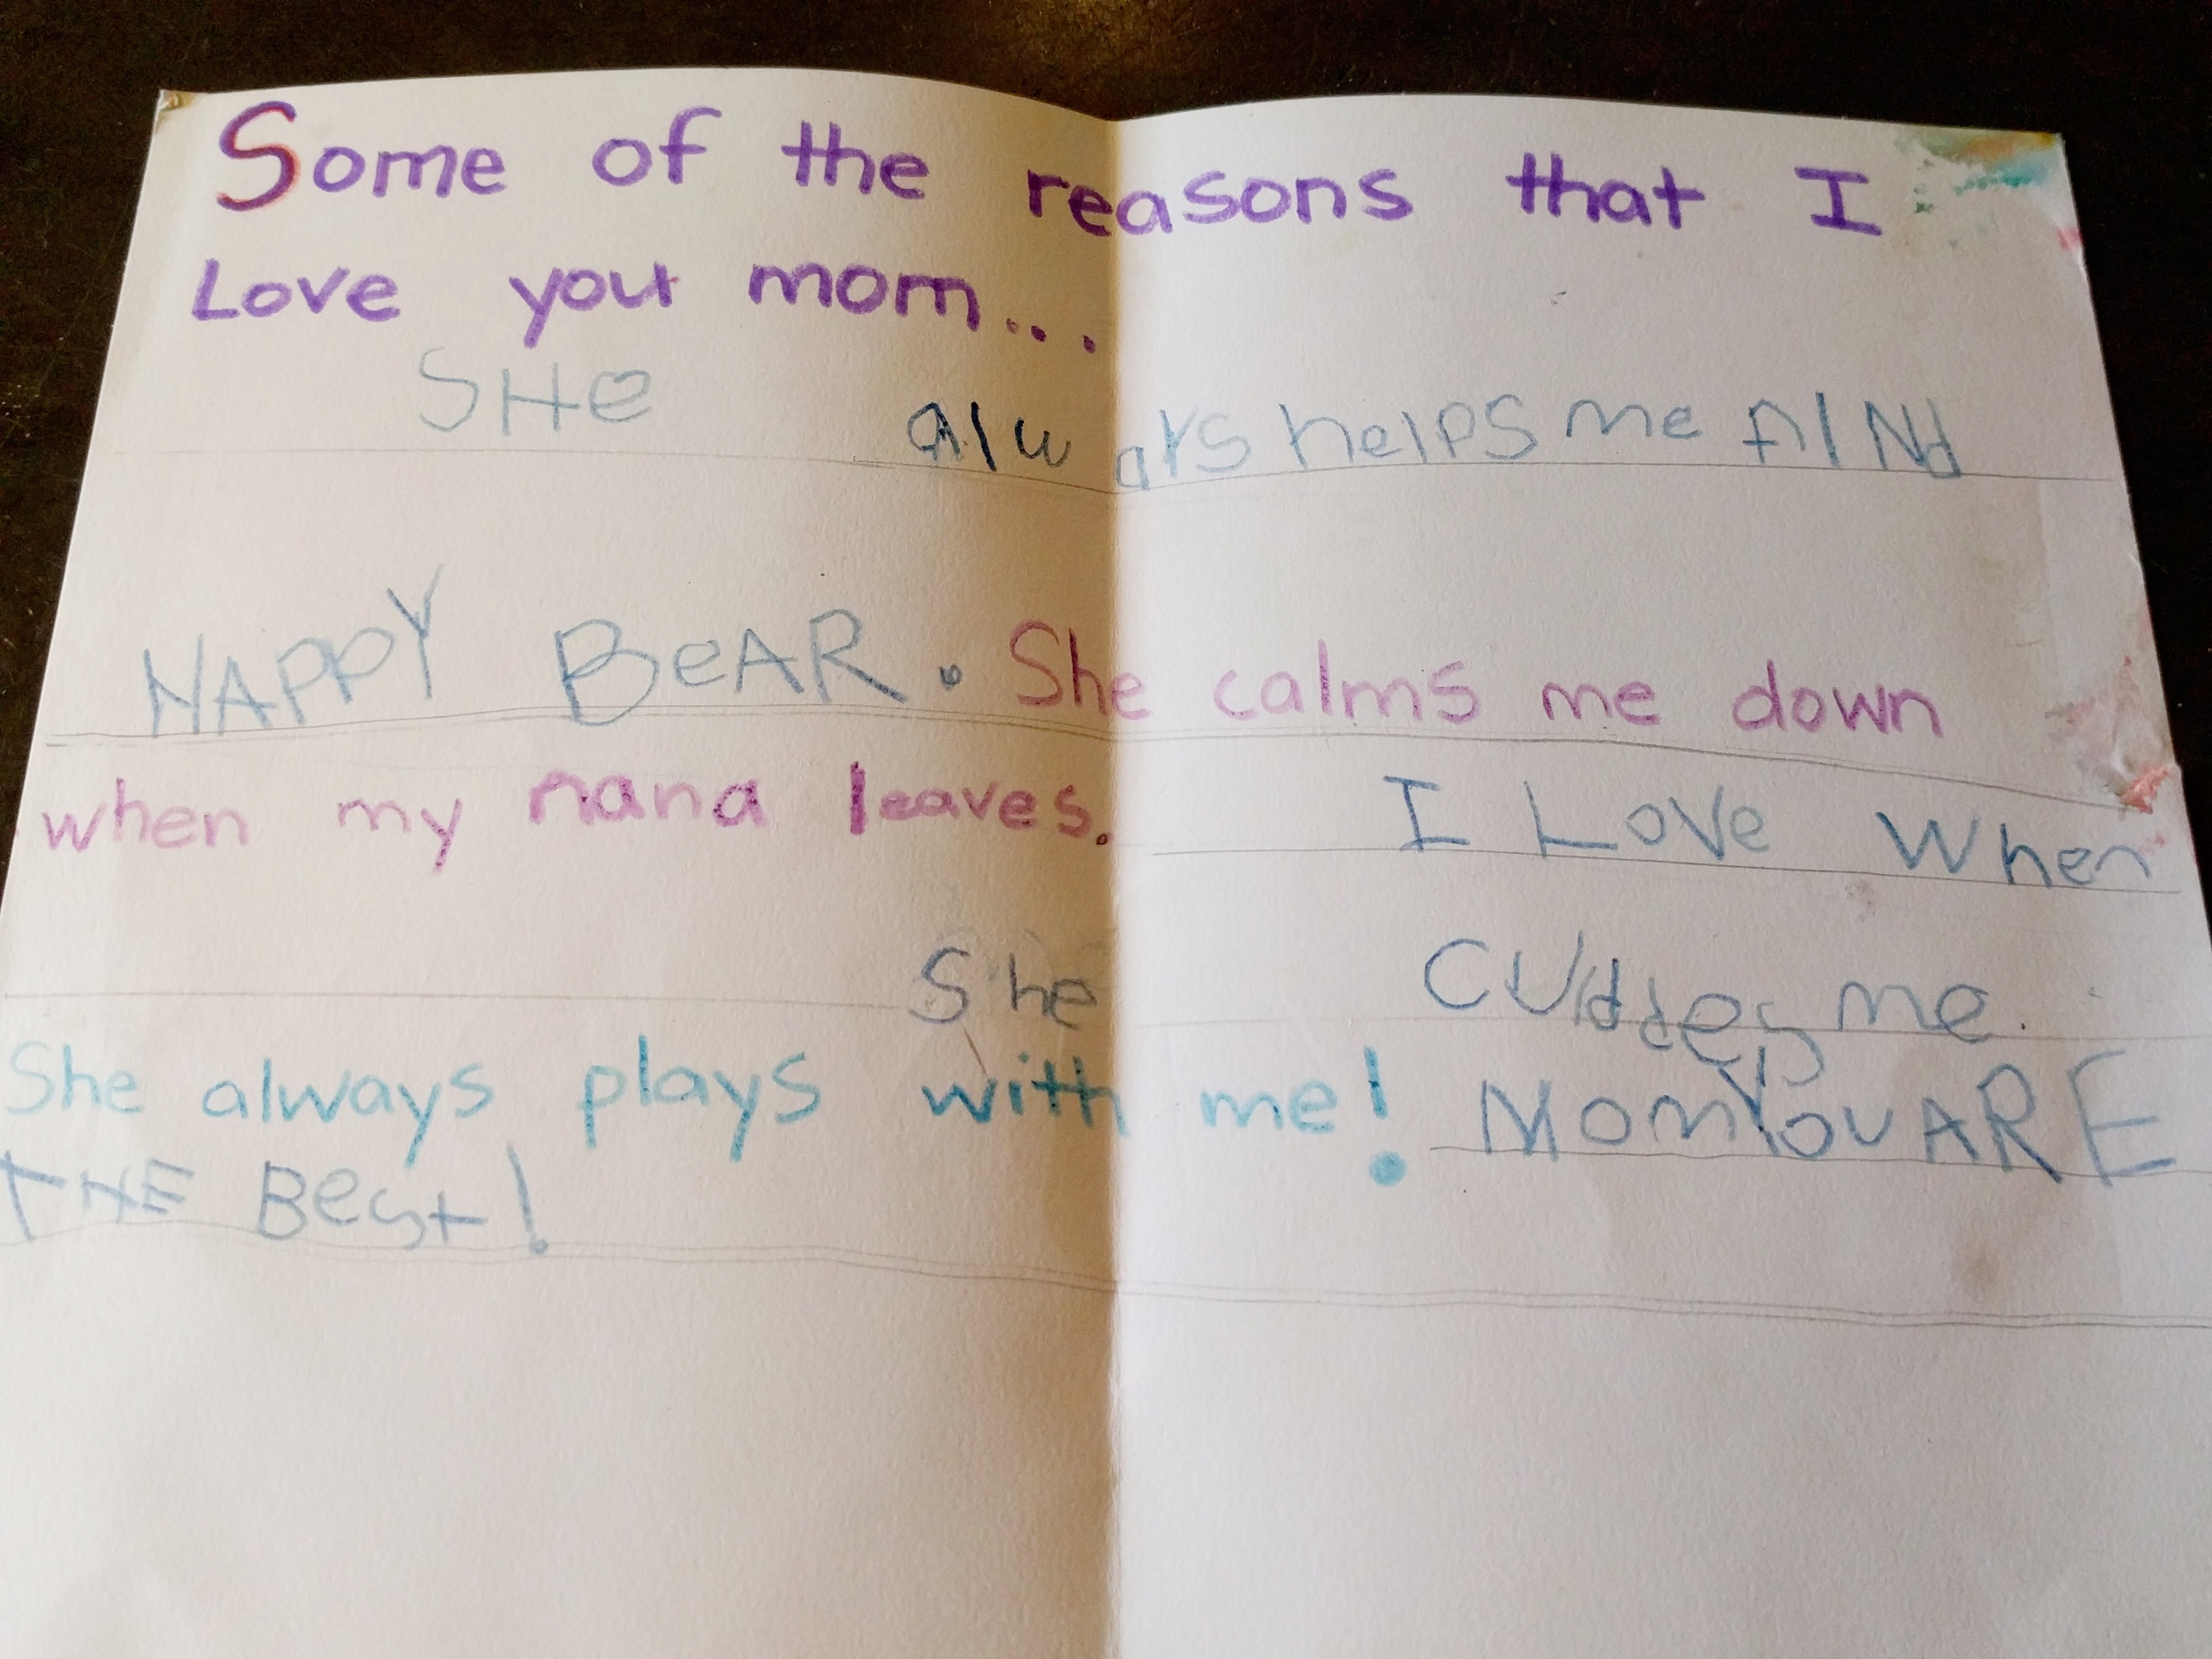 Some of the reasons that I
Love you mom...
SHe Always helps me fINd
NAPPY BeAR. She calms me down
when my nana leaves. I Love When
She cuddles me.
She always plays with me! Mom You ARE
THE Best!